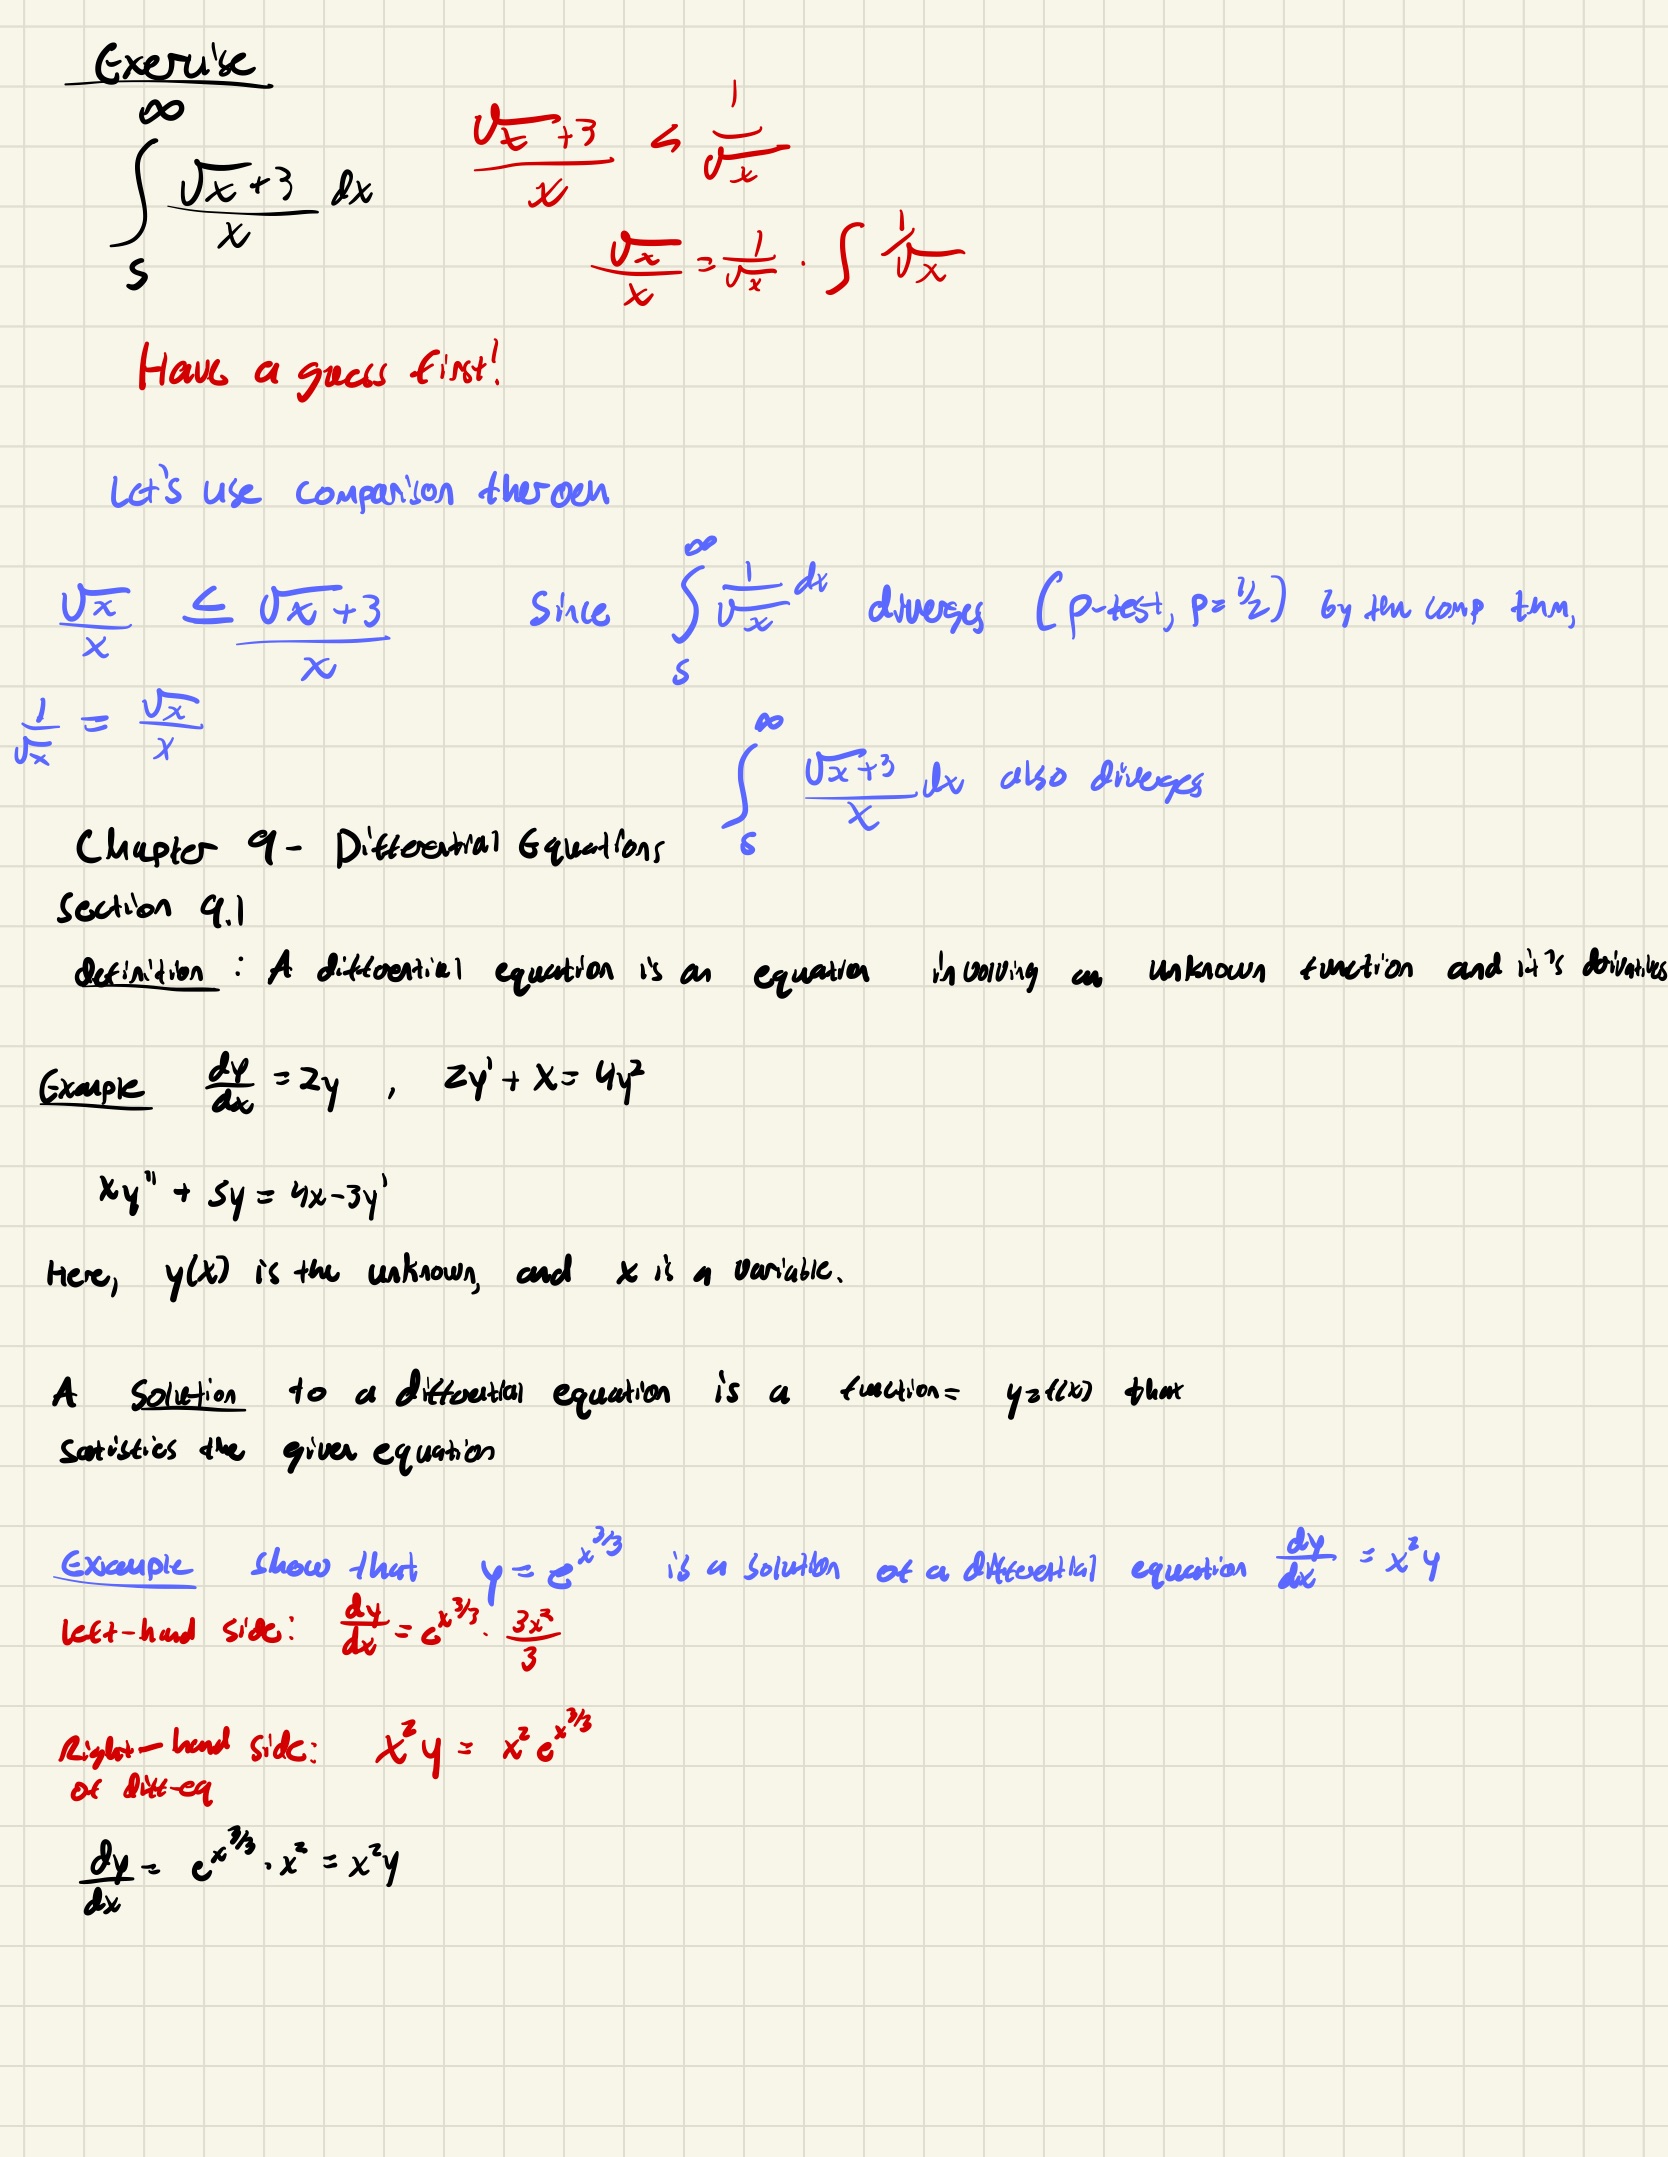 Exercise
∫_5^∞ (√x+3)/x dx
(√x+3)/x < 1/√x
√x/x = 1/√x . ∫ 1/√x
Have a guess first!
Let's use comparison theroem
√x/x ≤ (√x+3)/x Since ∫_5^∞ 1/√x dx diverges (p-test, p=1/2) by the comp thm,
1/√x = √x/x
∫_5^∞ (√x+3)/x dx also diverges
Chapter 9 - Differential Equations
Section 9.1
definition: A differential equation is an equation involving an unknown function and it's derivatives
Example dy/dx = 2y , 2y' + x = 4y²
xy'' + 5y = 4x-3y'
Here, y(x) is the unknown, and x is a variable.
A solution to a differential equation is a function = y=f(x) that
satisfies the given equation
Example show that y = e^(x^3/3) is a solution of a differential equation dy/dx = x²y
Left-hand side: dy/dx = e^(x^3/3) · 3x²/3
Right-hand side: x²y = x² e^(x^3/3)
of diff-eq
dy/dx = e^(x^3/3) · x² = x²y